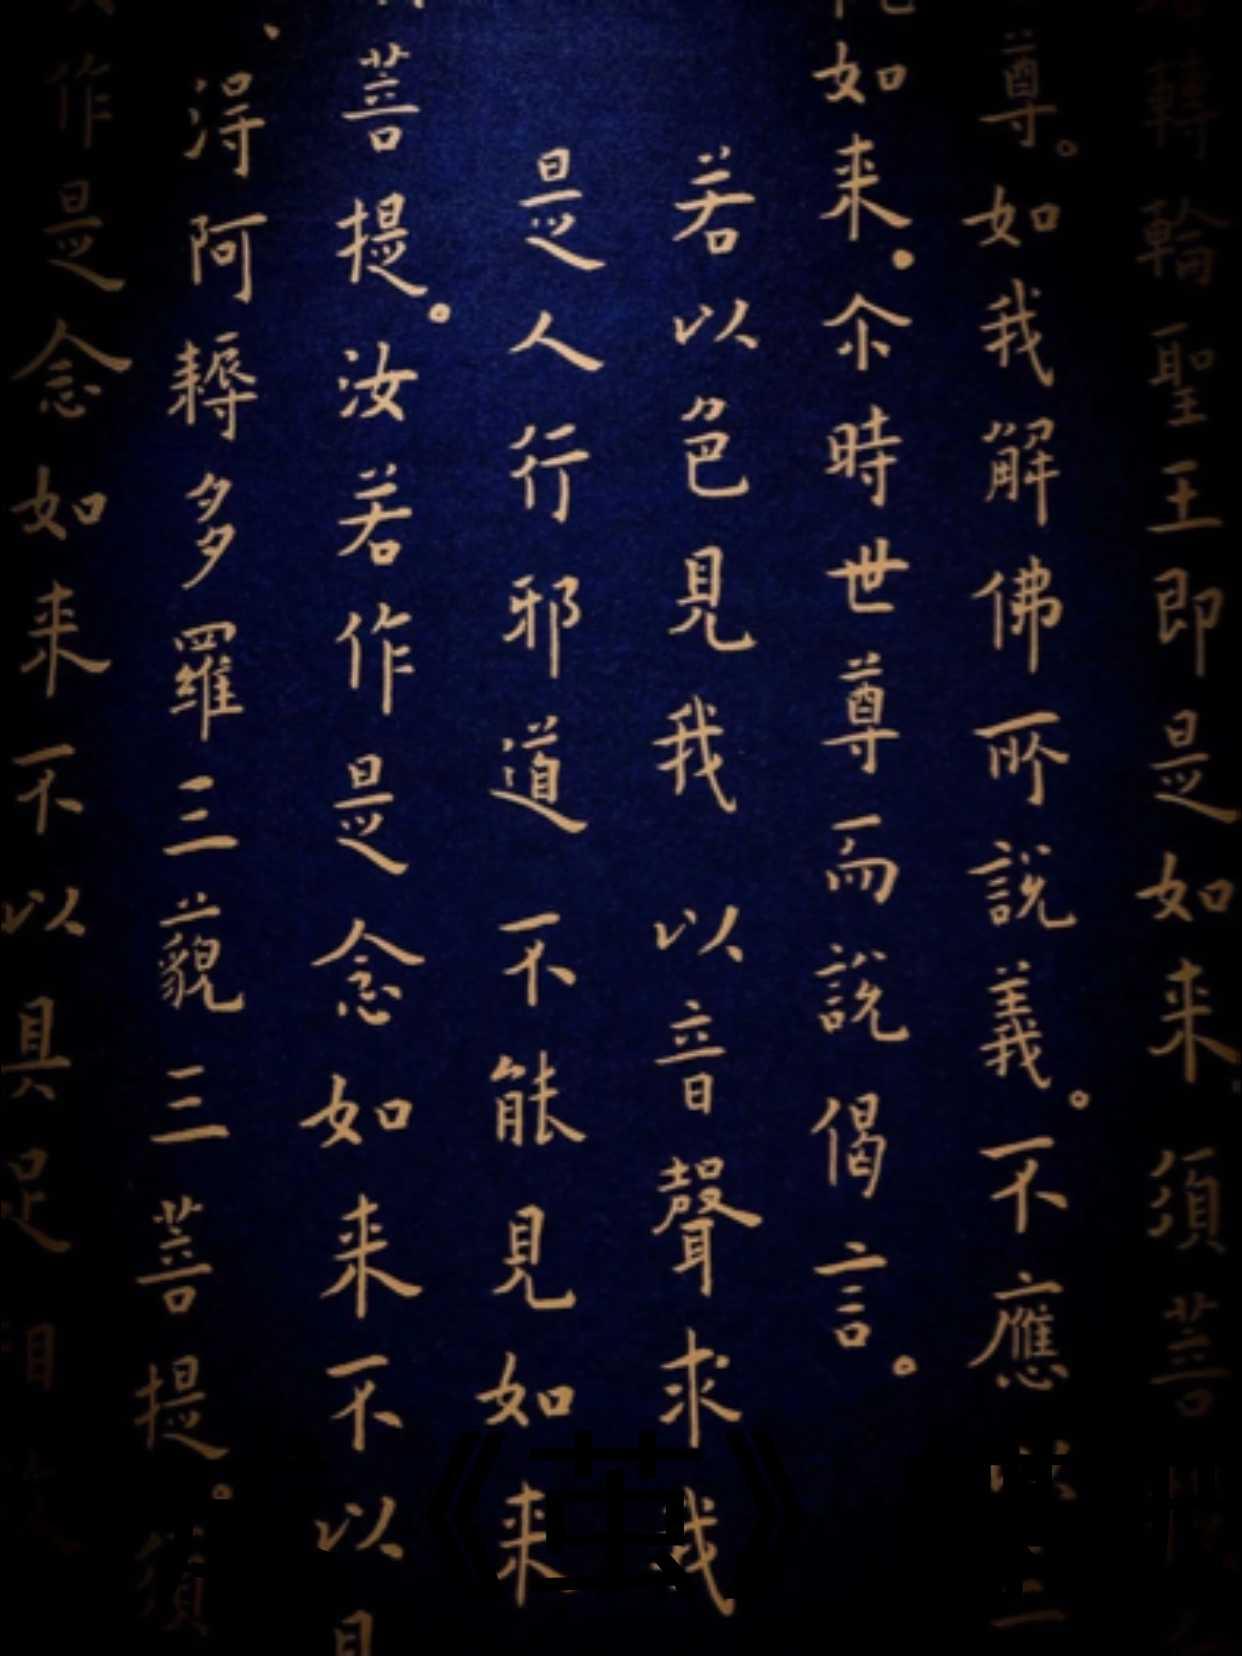 轉輪聖王即是如來須菩
尊。如我解佛所說義。不應以三
如來。尒時世尊而說偈言。
若以色見我以音聲求我
是人行邪道不能見如來
菩提。汝若作是念如來不以具
、得阿耨多羅三藐三菩提。須
作是念如來不以具足相故
《茧》